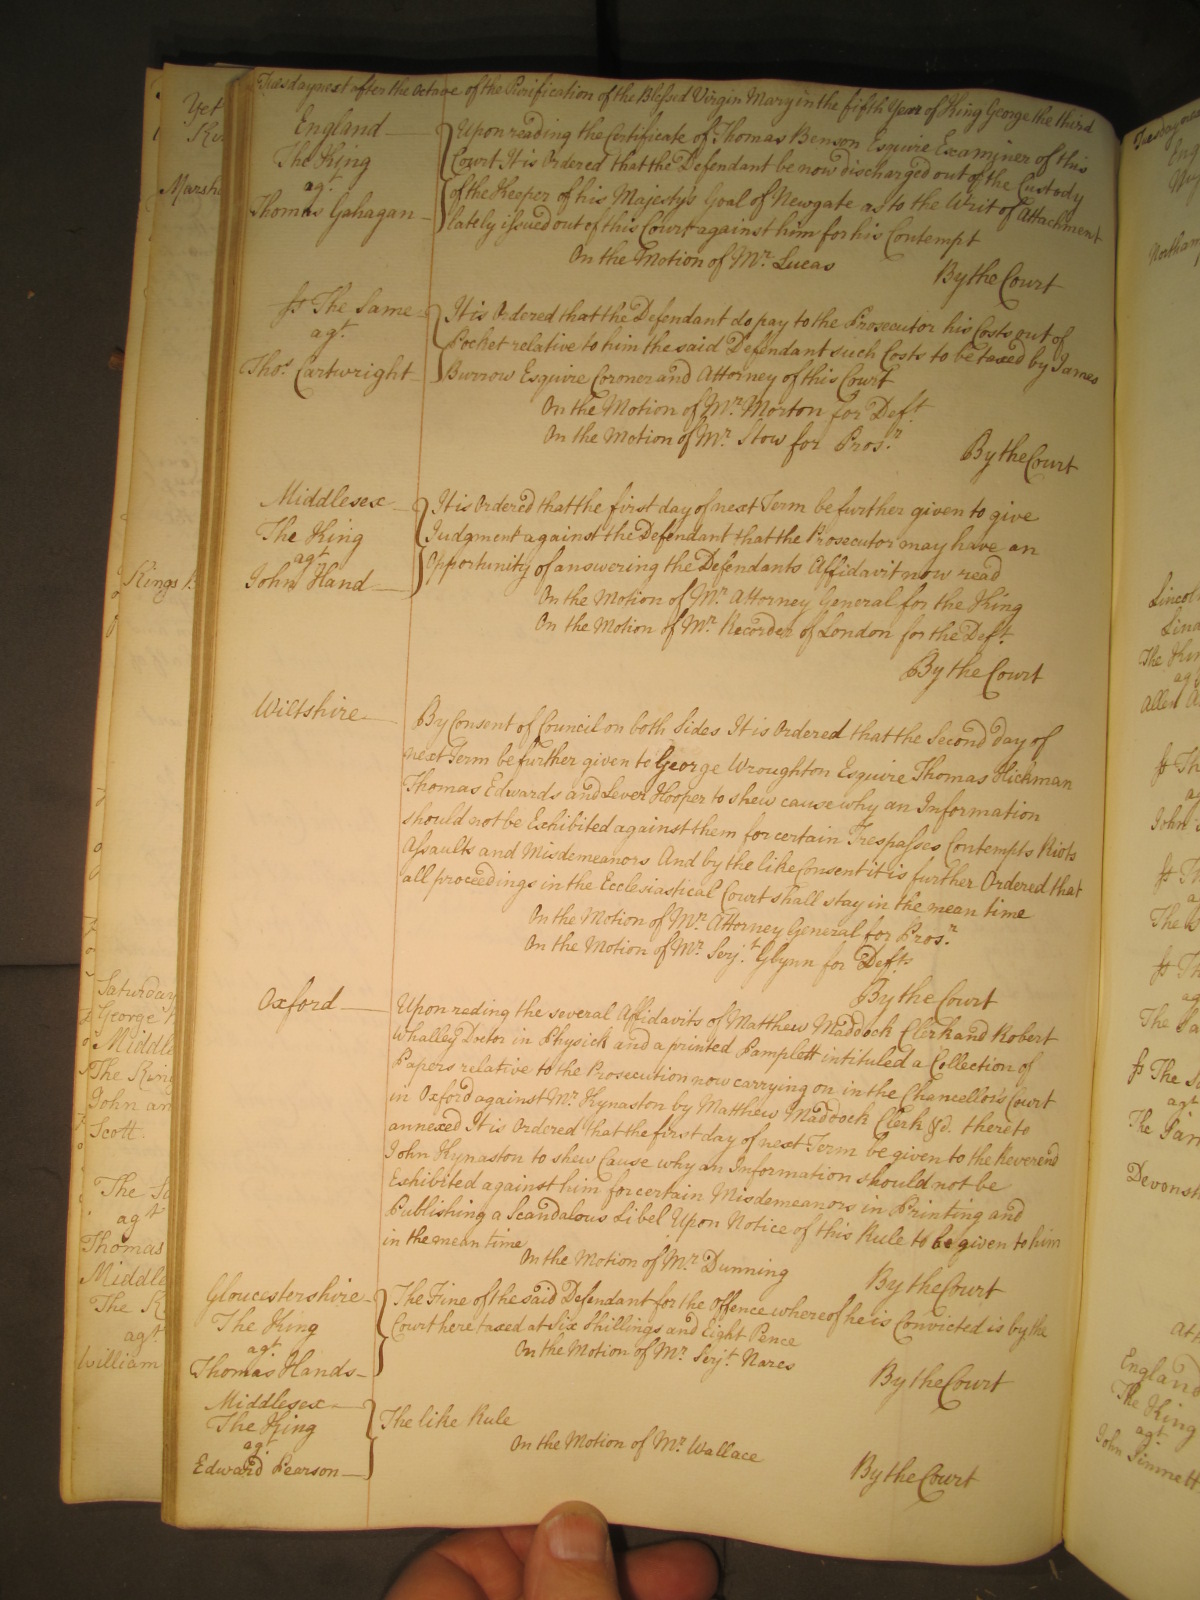 Tuesday next after the Octave of the Purification of the Blessed Virgin Mary in the fifth Year of King George the third
England
The King
agt.
Thomas Gahagan
Upon reading the Certificate of Thomas Benson Esquire Examiner of this
Court It is Ordered that the Defendant be now discharged out of the Custody
of the Keeper of his Majesty's Goal of Newgate as to the Writ of Attachment
lately issued out of this Court against him for his Contempt
On the Motion of Mr. Lucas
By the Court
Ss The Same
agt.
Thos. Cartwright
It is Ordered that the Defendant do pay to the Prosecutor his Costs out of
Pocket relative to him the said Defendant such Costs to be taxed by James
Burrow Esquire Coroner and Attorney of this Court
On the Motion of Mr. Morton for Deft.
On the Motion of Mr. Stow for Prosr.
By the Court
Middlesex
The King
agt.
John Hand
It is Ordered that the first day of next Term be further given to give
Judgment against the Defendant that the Prosecutor may have an
Opportunity of answering the Defendants Affidavit now read
On the Motion of Mr. Attorney General for the King
On the Motion of Mr. Recorder of London for the Deft.
By the Court
Wiltshire
By Consent of Council on both sides It is Ordered that the Second day of
next Term be further given to George Wroughton Esquire Thomas Hickman
Thomas Edwards and Lever Hooper to shew cause why an Information
should not be Exhibited against them for certain Trespasses Contempts Riots
Assaults and Misdemeanors And by the like Consent it is further Ordered that
all proceedings in the Ecclesiastical Court shall stay in the mean time
On the Motion of Mr. Attorney General for Prosr.
On the Motion of Mr. Serjt. Glynn for Defts.
By the Court
Oxford
Upon reding the several Affidavits of Matthew Maddock Clerk and Robert
Whalley Doctor in Physick and a printed Pamplett intituled a Collection of
Papers relative to the Prosecution now carrying on in the Chancellors Court
in Oxford against Mr. Kynaston by Matthew Maddock Clerk &c. thereto
annexed It is Ordered that the first day of next Term be given to the Reverend
John Kynaston to shew Cause why an Information should not be
Exhibited against him for certain Misdemeanors in Printing and
Publishing a Scandalous Libel Upon Notice of this Rule to be given to him
in the mean time
On the Motion of Mr. Dunning
By the Court
Gloucestershire
The King
agt.
Thomas Hands
The Fine of the said Defendant for the Offence whereof he is Convicted is by the
Court here taxed at Six Shillings and Eight Pence
On the Motion of Mr. Serjt. Nares
By the Court
Middlesex
The King
agt.
Edward Pearson
The like Rule
On the Motion of Mr. Wallace
By the Court